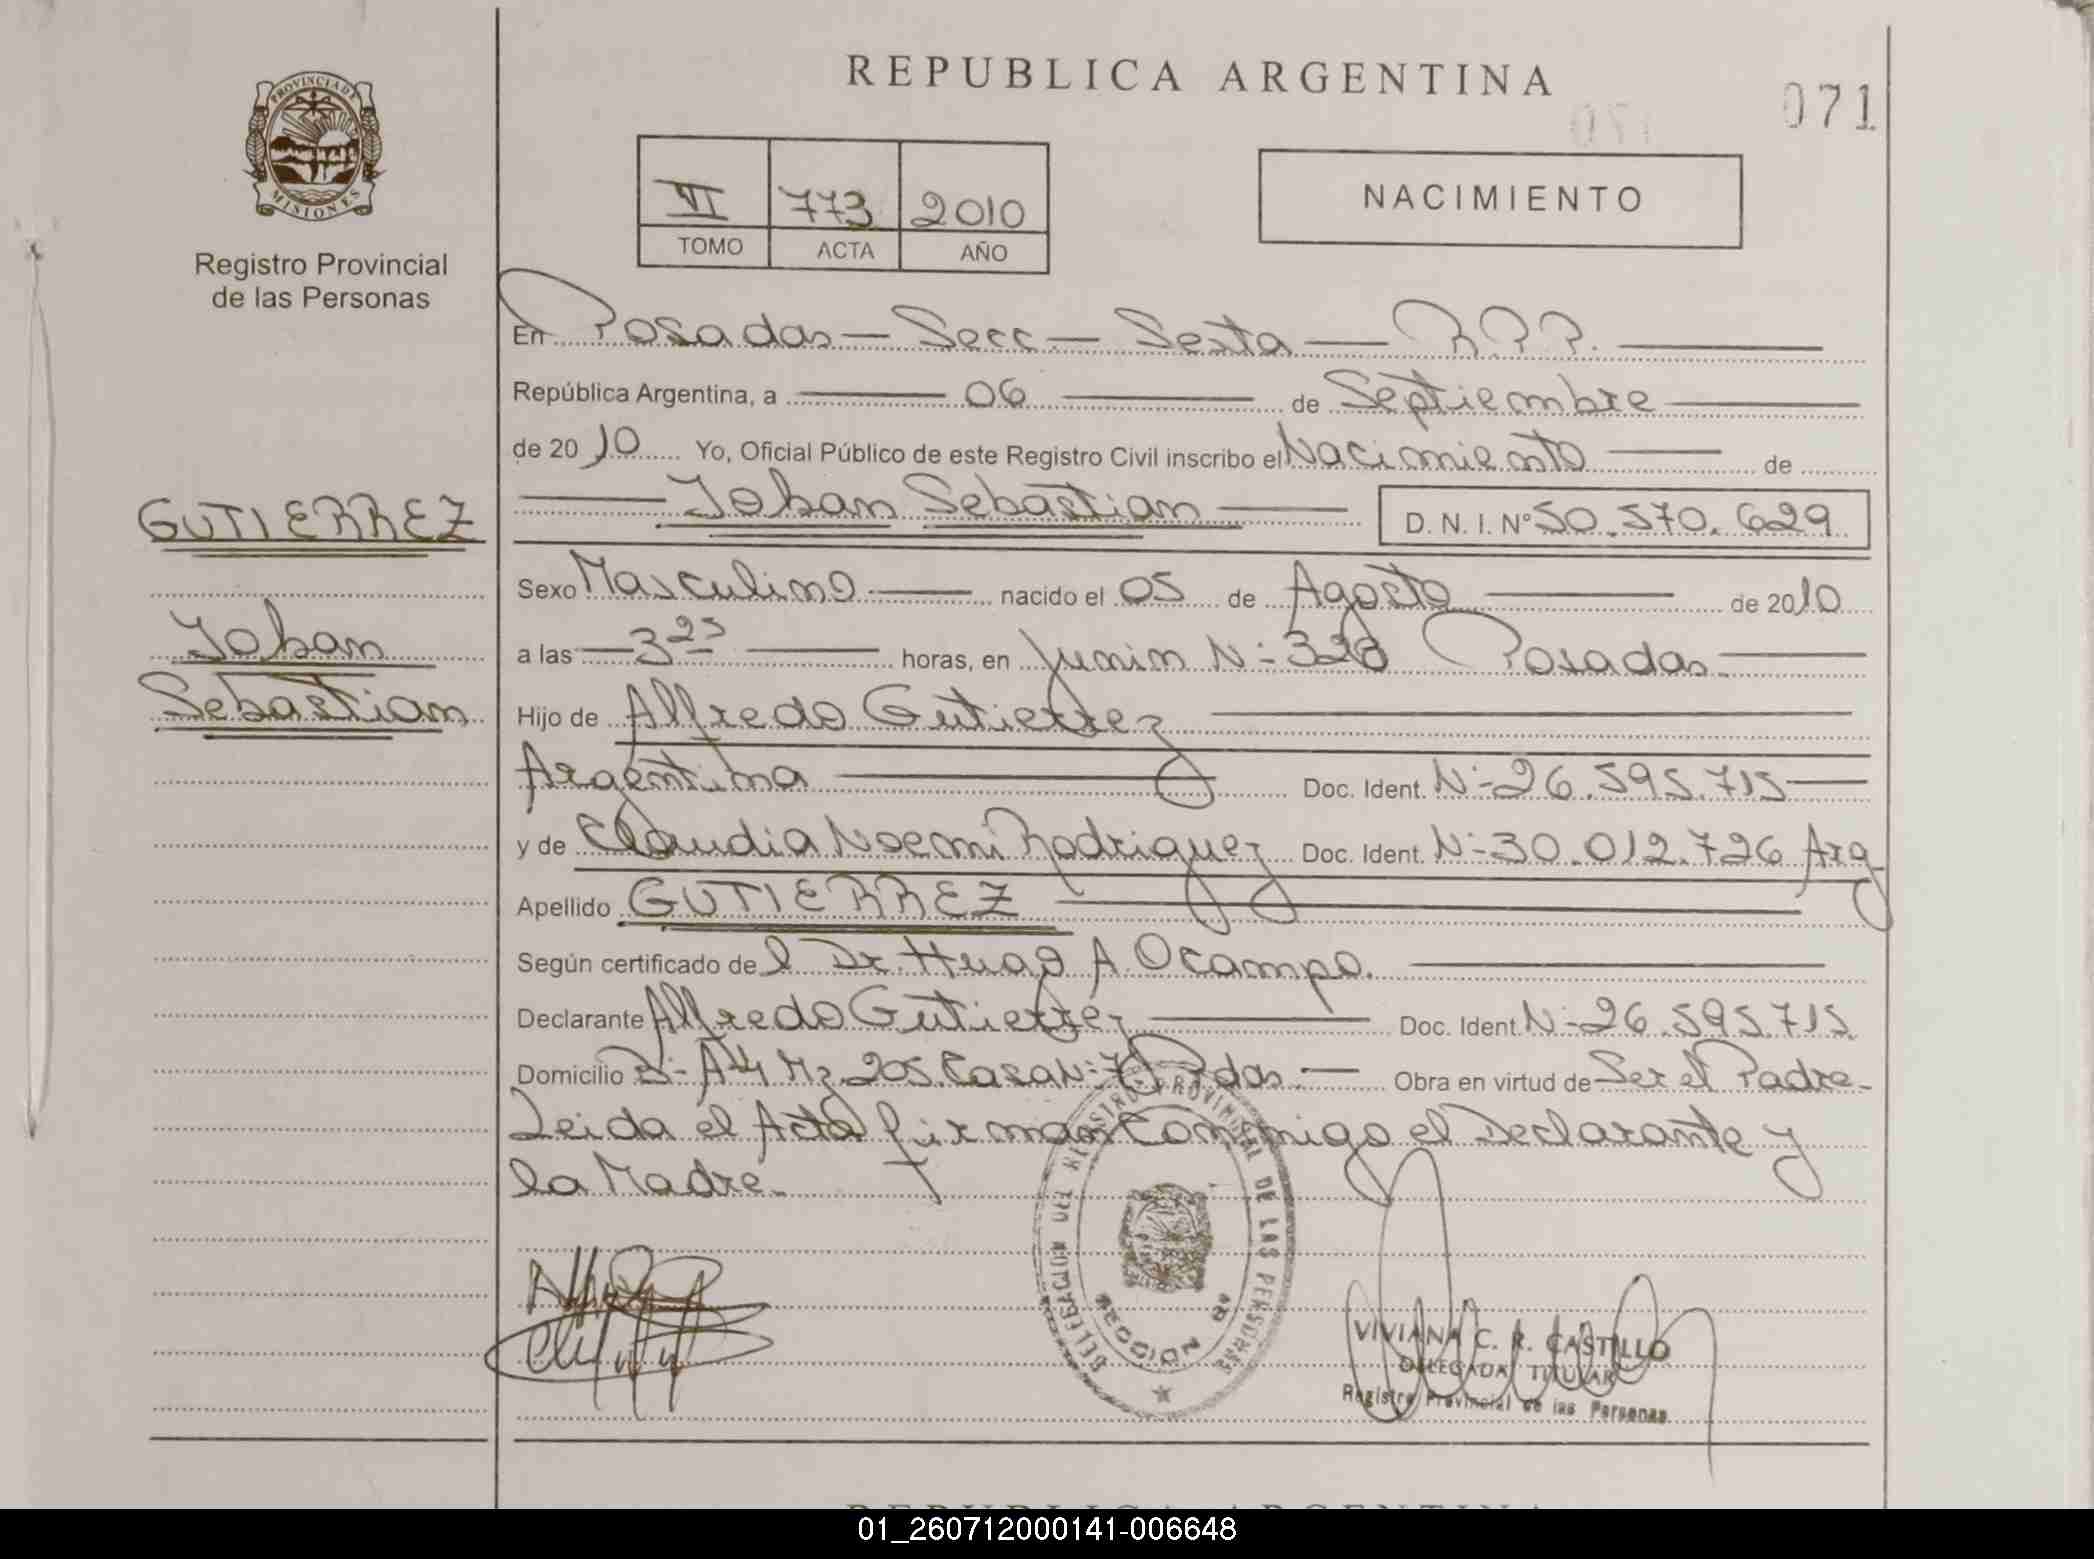 REPUBLICA ARGENTINA
071
PROVINCIA DE
MISIONES
Registro Provincial
de las Personas
VI 773 2010
TOMO ACTA AÑO
NACIMIENTO
En Posadas — Secc — Sexta — R.P.P. —
República Argentina, a — 06 — de Septiembre —
de 2010 Yo, Oficial Público de este Registro Civil inscribo el Nacimiento — de
— Joban Sebastian — D. N. I. N° 50.570.629
GUTIERREZ
Joban
Sebastian
Sexo Masculino — nacido el 05 de Agosto — de 2010
a las — 3 25 — horas, en Junin N:- 328 Posadas. —
Hijo de Alfredo Gutierrez —
Argentina — Doc. Ident. N:- 26.595.715 —
y de Claudia Noemi Rodriguez Doc. Ident. N:- 30.012.726 Arg
Apellido GUTIERREZ —
Según certificado del Dr. Hugo A. Ocampo. —
Declarante Alfredo Gutierrez — Doc. Ident. N:- 26.595.715
Domicilio B:- A4 Mz. 205. Casa N:- 7 Pdas. — Obra en virtud de Ser el Padre.-
Leida el Acta firman Conmigo el Declarante y
la Madre.-
DELEGACION DEL REGISTRO PROVINCIAL DE LAS PERSONAS
SECCION 6ª
VIVIANA C. R. CASTILLO
DELEGADA TITULAR
Registro Provincial de las Personas
REPUBLICA ARGENTINA
01_260712000141-006648